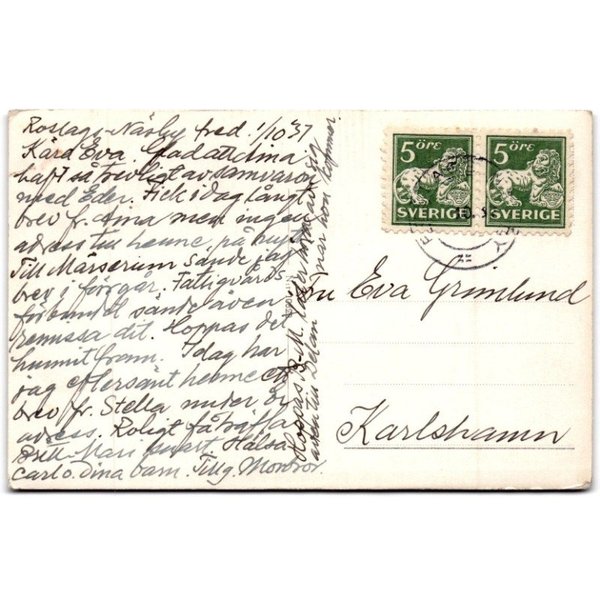 Roslags-Näsby fred. 1/10 37
Kära Eva. Glad att Anna
haft så trevligt av samvaron
med Eder. Fick idag långt
brev fr. Anna men ingen
adress till henne, på
Till Märserum sände jag
brev i förgår. Fattigvårds
förbundet sände även
remissa dit. Hoppas det
hunnit fram. Idag har
jag eftersänt henne ett
brev fr. Stella under
adress. Roligt få träffa
Britt Mari snart. Hälsa
Carl o. dina barn. Tillg.
Hoppas B-M.
även till Delan när hon kommer.
5 ÖRE
SVERIGE
5 ÖRE
SVERIGE
Fru Eva Grimlund
Karlshamn